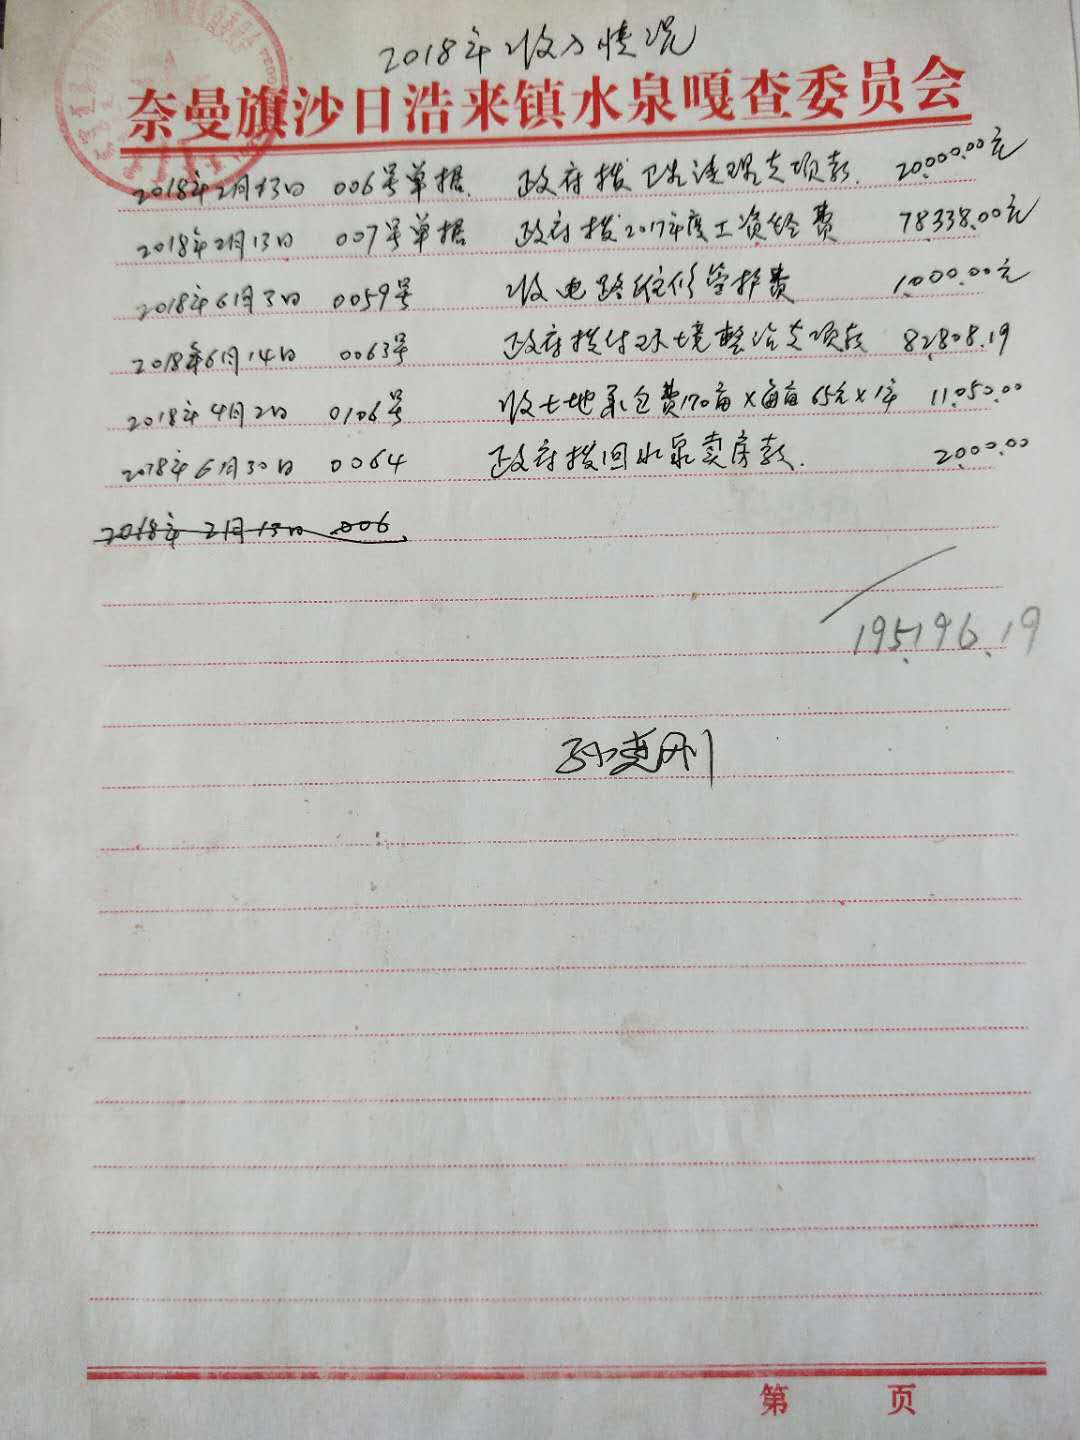 2018年收入情况
奈曼旗沙日浩来镇水泉嘎查委员会
2018年2月13日 006号单据. 政府拨卫生清理专项款. 20,000.00元
2018年2月13日 007号单据 政府拨2017年度工资经费 78,338.00元
2018年6月3日 0059号 收电路维修管护费 1,000.00元
2018年6月14日 0063号 政府拨付环境整治专项款 82,808.19
2018年4月2日 0106号 收土地承包费170亩×每亩65元×1年 11,050.00
2018年6月30日 0064 政府拨回水泉卖房款. 2,000.00
2018年2月13日 006
195,196.19
孙 刚
第 页